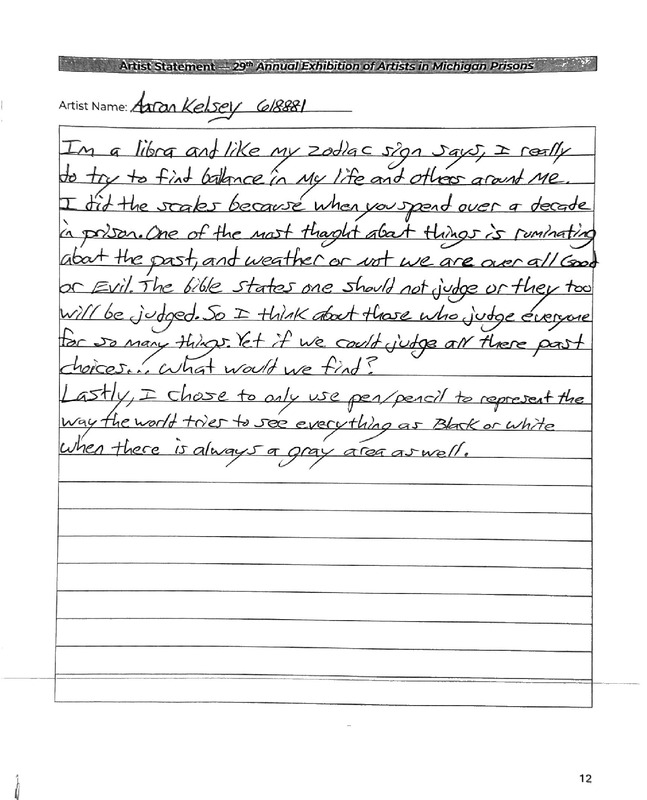 Artist Statement — 29th Annual Exhibition of Artists in Michigan Prisons
Artist Name: Aaron Kelsey 618881
Im a libra and like my zodiac sign says, I really
do try to find ballance in my life and others around me.
I did the scales because when you spend over a decade
in prison. One of the most thaght about things is ruminating
about the past, and weather or not we are over all Good
or Evil. The bible states one should not judge or they too
will be judged. So I think about those who judge everyone
for so many things. Yet if we could judge all there past
choices... what would we find?
Lastly, I chose to only use pen/pencil to represent the
way the world tries to see everything as Black or white
when there is always a gray area as well.
12